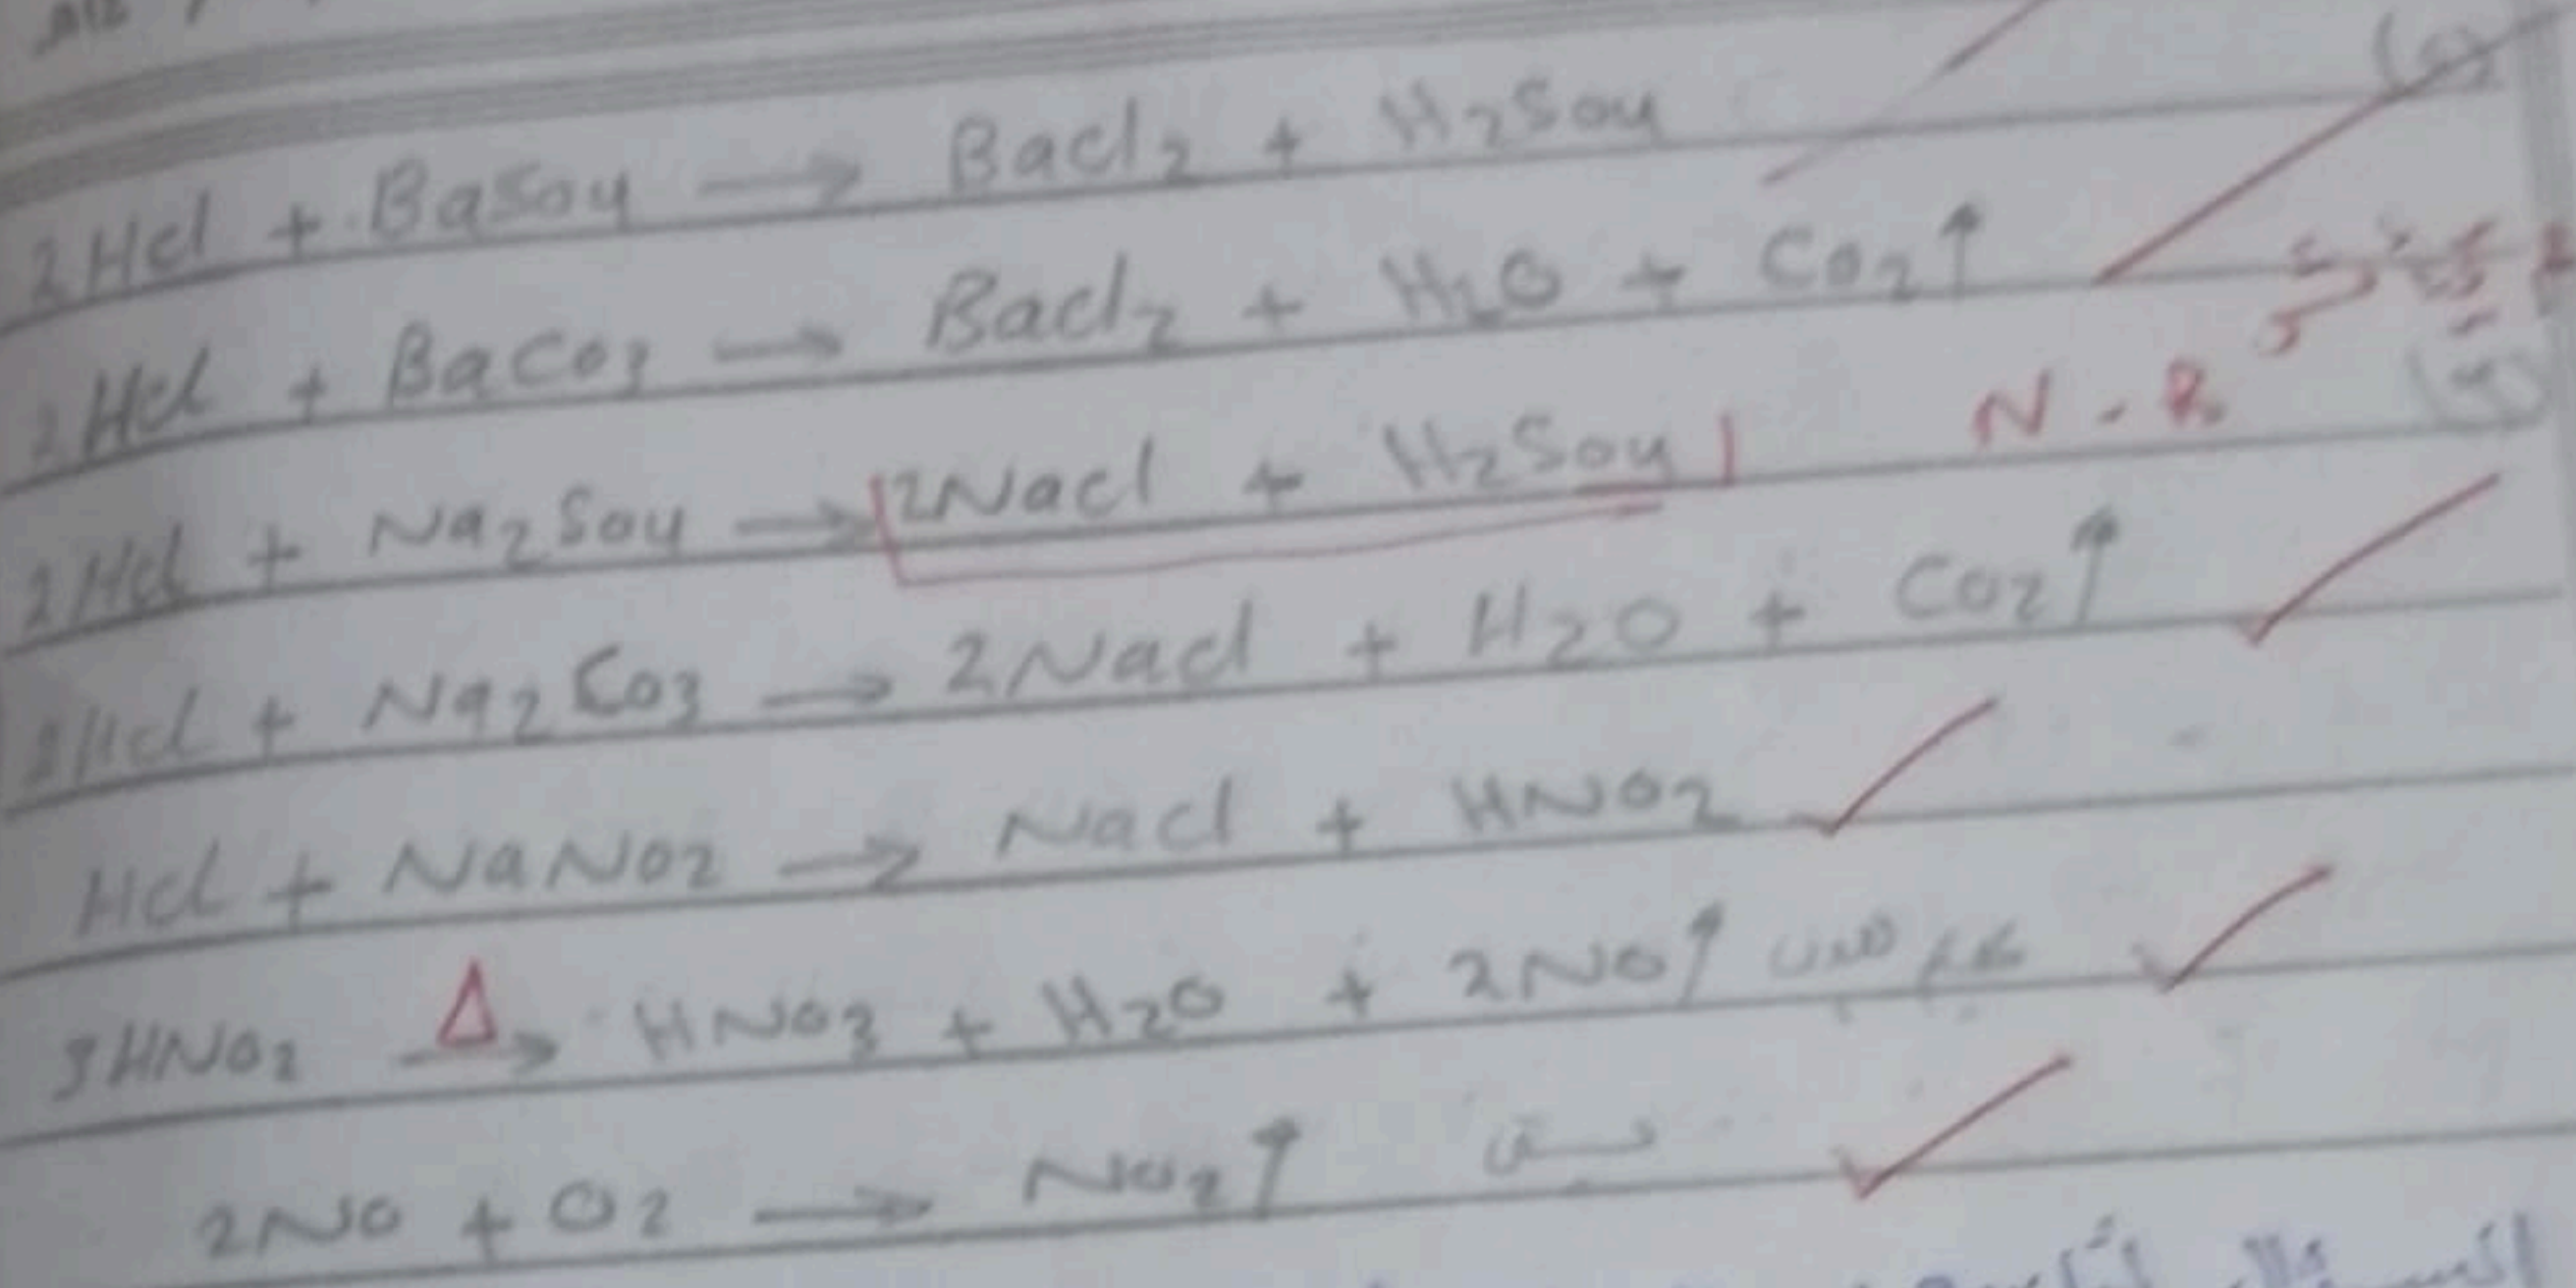 2Hcl + BaSo4 → Bacl2 + H2So4
2Hcl + BaCo3 → Bacl2 + H2O + Co2↑
2Hcl + Na2So4 → 2Nacl + H2So4 N-R
2Hcl + Na2Co3 → 2Nacl + H2O + Co2↑
Hcl + NaNO2 → Nacl + HNO2
3HNO2 Δ→ HNO3 + H2O + 2NO↑
2NO + O2 → NO2↑